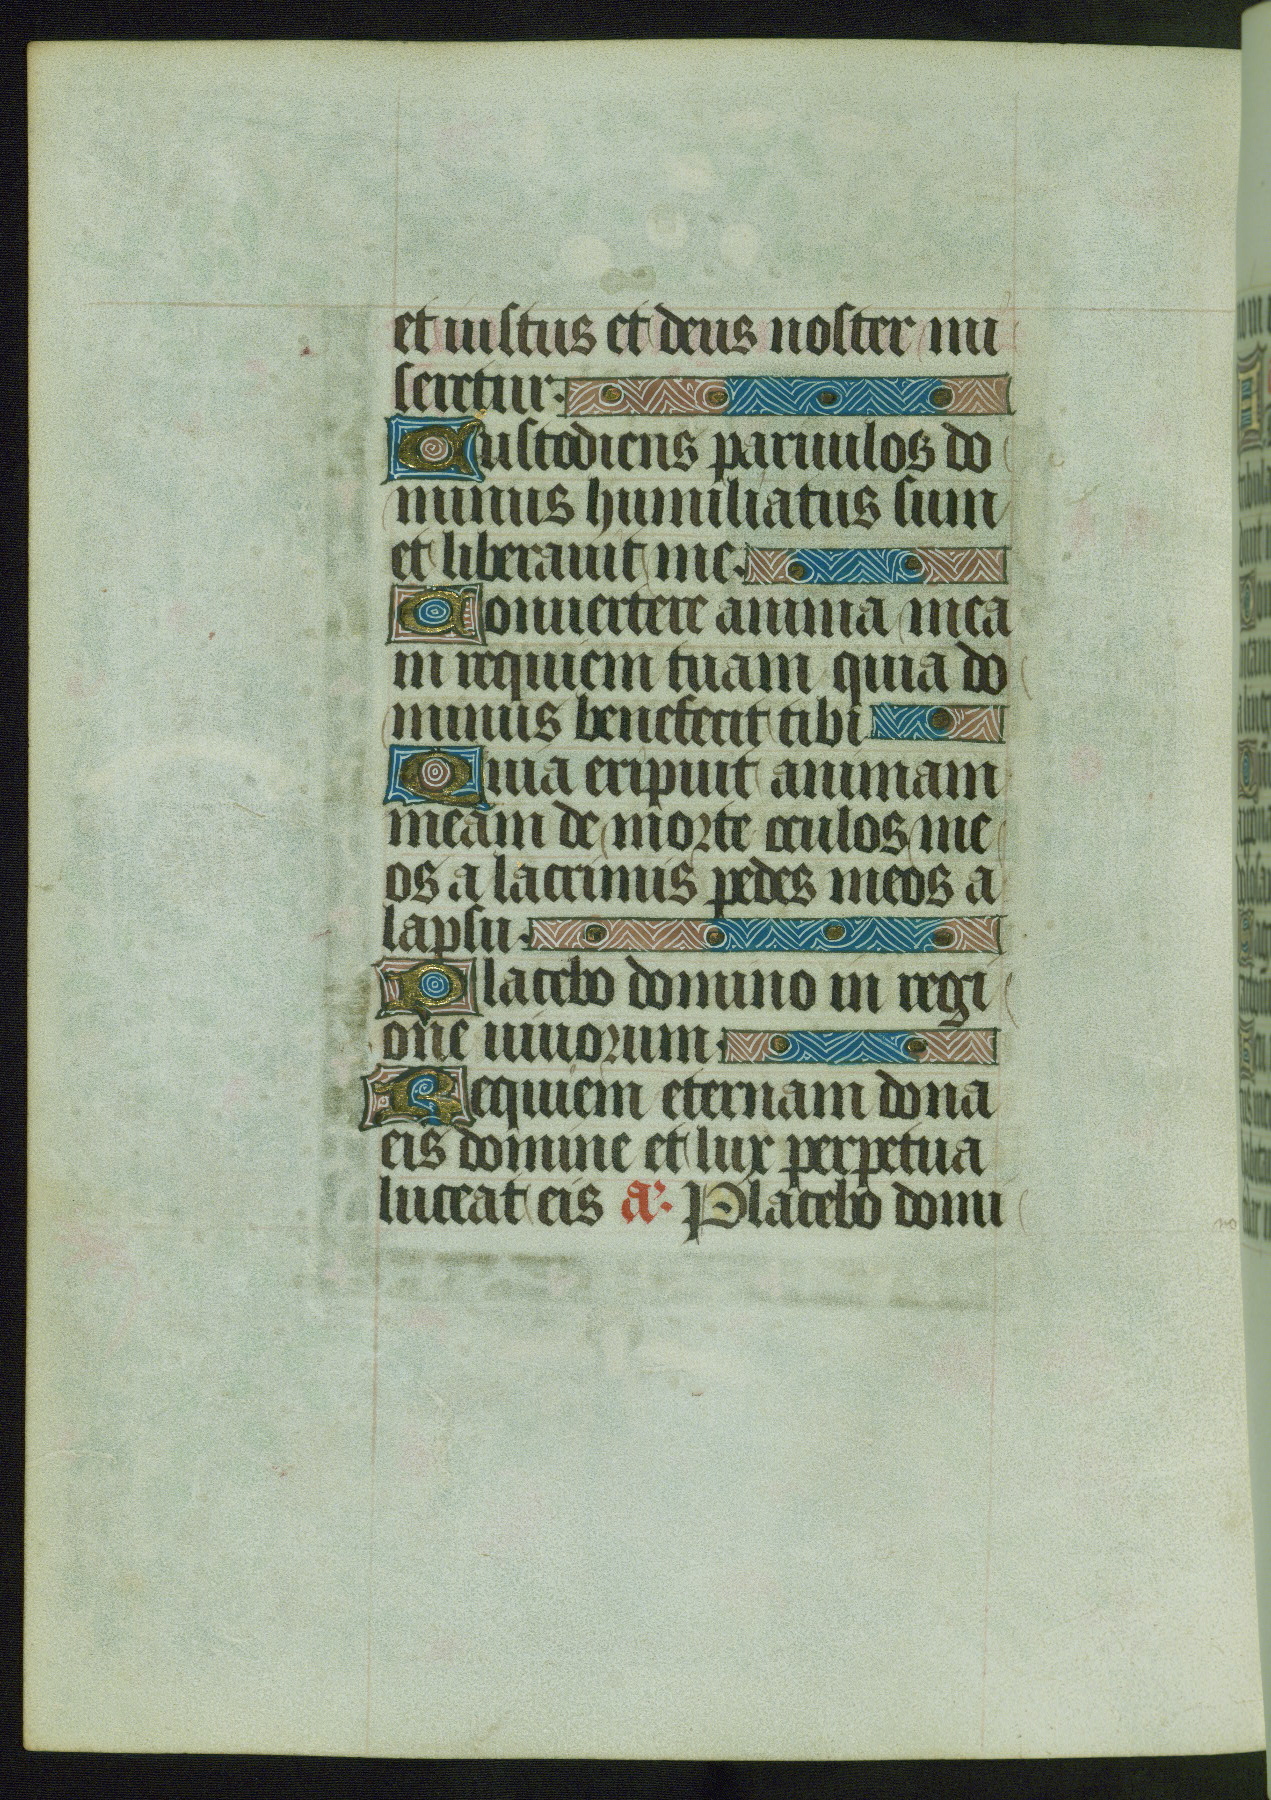 et iustus et deus noster mi
seretur.
Custodiens paruulos do
minus humiliatus sum
et liberauit me.
Conuertere anima mea
in requiem tuam quia do
minus benefecit tibi
Quia eripuit animam
meam de morte oculos me
os a lacrimis pedes meos a
lapsu.
Placebo domino in regi
one uiuorum.
Requiem eternam dona
eis domine et lux perpetua
luceat eis a. Placebo domi